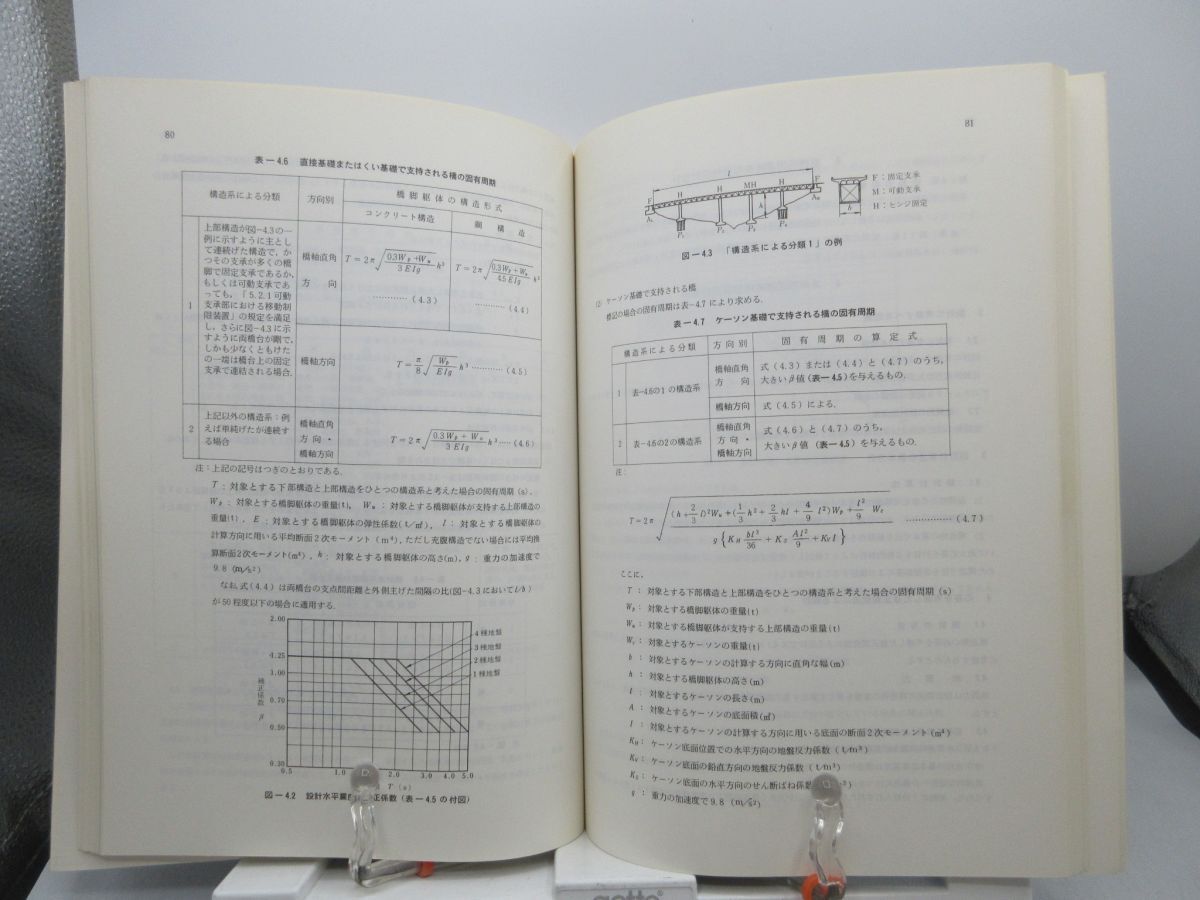 80
表－4.6 直接基礎またはくい基礎で支持される橋の固有周期
構造系による分類
方向別
橋脚躯体の構造形式
コンクリート構造
鋼構造
1
上部構造が図－4.3の一
例に示すように主とし
て連続げた構造で，か
つその支承が多くの橋
脚で固定支承であるか，
もしくは可動支承であ
っても，「5.2.1可動
支承部における移動制
限装置」の規定を満足
し，さらに図－4.3に示
すように両橋台が剛で，
しかも少なくともけた
の一端は橋台上の固定
支承で連結される場合．
橋軸直角
方向
T = 2π√(0.3Wp+Wu / 3EIg) h³
………… (4.3)
T = 2π√(0.3Wp+Wu / 4.5EIg) h³
………… (4.4)
橋軸方向
T = π/8 √(Wp / EIg) h³ ………… (4.5)
2
上記以外の構造系：例
えば単純げたが連続す
る場合
橋軸直角
方向・
橋軸方向
T = 2π√(0.3Wp + Wu / 3EIg) h³ …… (4.6)
注：上記の記号はつぎのとおりである．
T：対象とする下部構造と上部構造をひとつの構造系と考えた場合の固有周期(s)，
Wp：対象とする橋脚躯体の重量(t)，Wu：対象とする橋脚躯体が支持する上部構造の
重量(t)，E：対象とする橋脚躯体の弾性係数(t/㎡)，I：対象とする橋脚躯体の
計算方向に用いる平均断面2次モーメント(m⁴)，ただし充腹構造でない場合には平均換
算断面2次モーメント(m⁴)，h：対象とする橋脚躯体の高さ(m)，g：重力の加速度で
9.8 (m/s²)
なお，式(4.4)は両橋台の支点間距離と外側主げた間隔の比(図－4.3においてl/b)
が50程度以下の場合に適用する．
2.00
4.25
1.00
0.70
0.50
0.30
補正係数 β
4種地盤
3種地盤
2種地盤
1種地盤
0.5 1.0 2.0 3.0 4.0 5.0
T (s)
図－4.2 設計水平震度の補正係数（表－4.5の付図）
81
l
F H H MH H F
A₁ P₁ P₂ P₃ P₄
h
b
F：固定支承
M：可動支承
H：ヒンジ固定
図－4.3 「構造系による分類1」の例
(2) ケーソン基礎で支持される橋
標記の場合の固有周期は表－4.7により求める．
表－4.7 ケーソン基礎で支持される橋の固有周期
構造系による分類
方向別
固有周期の算定式
1
表－4.6の1の構造系
橋軸直角
方向
式(4.3)または(4.4)と(4.7)のうち，
大きいβ値(表－4.5)を与えるもの．
橋軸方向
式(4.5)による．
2
表－4.6の2の構造系
橋軸直角
方向・
橋軸方向
式(4.6)と(4.7)のうち，
大きいβ値(表－4.5)を与えるもの．
注：
T = 2π√((h+2/3 l)²Wu+(1/3 h²+2/3 hl+4/9 l²)Wp+l²/9 Wc / g{K_H bl³/36 + K_S Al²/9 + K_V I}) ………… (4.7)
ここに，
T：対象とする下部構造と上部構造をひとつの構造系と考えた場合の固有周期(s)
Wp：対象とする橋脚躯体の重量(t)
Wu：対象とする橋脚躯体が支持する上部構造の重量(t)
Wc：対象とするケーソンの重量(t)
b：対象とするケーソンの計算する方向に直角な幅(m)
h：対象とする橋脚躯体の高さ(m)
l：対象とするケーソンの長さ(m)
A：対象とするケーソンの底面積(㎡)
I：対象とするケーソンの計算する方向に用いる底面の断面2次モーメント(m⁴)
K_H：ケーソン底面位置での水平方向の地盤反力係数(t/m³)
K_V：ケーソン底面の鉛直方向の地盤反力係数(t/m³)
K_S：ケーソン底面の水平方向のせん断ばね係数
g：重力の加速度で9.8 (m/s²)